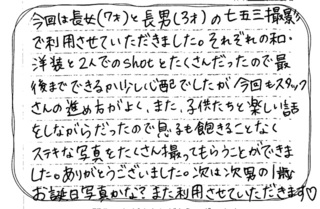 今回は長女(7才)と長男(3才)の七五三撮影
で利用させていただきました。それぞれの和・
洋装と2人でのshotとたくさんだったので最
後までできるか少し心配でしたが今回もスタッフ
さんの進め方がよく、また、子供たちと楽しい話
をしながらだったので息子も飽きることなく
ステキな写真をたくさん撮ってもらうことができま
した。ありがとうございました。次は次男の1歳
お誕日写真かな？また利用させていただきます♡